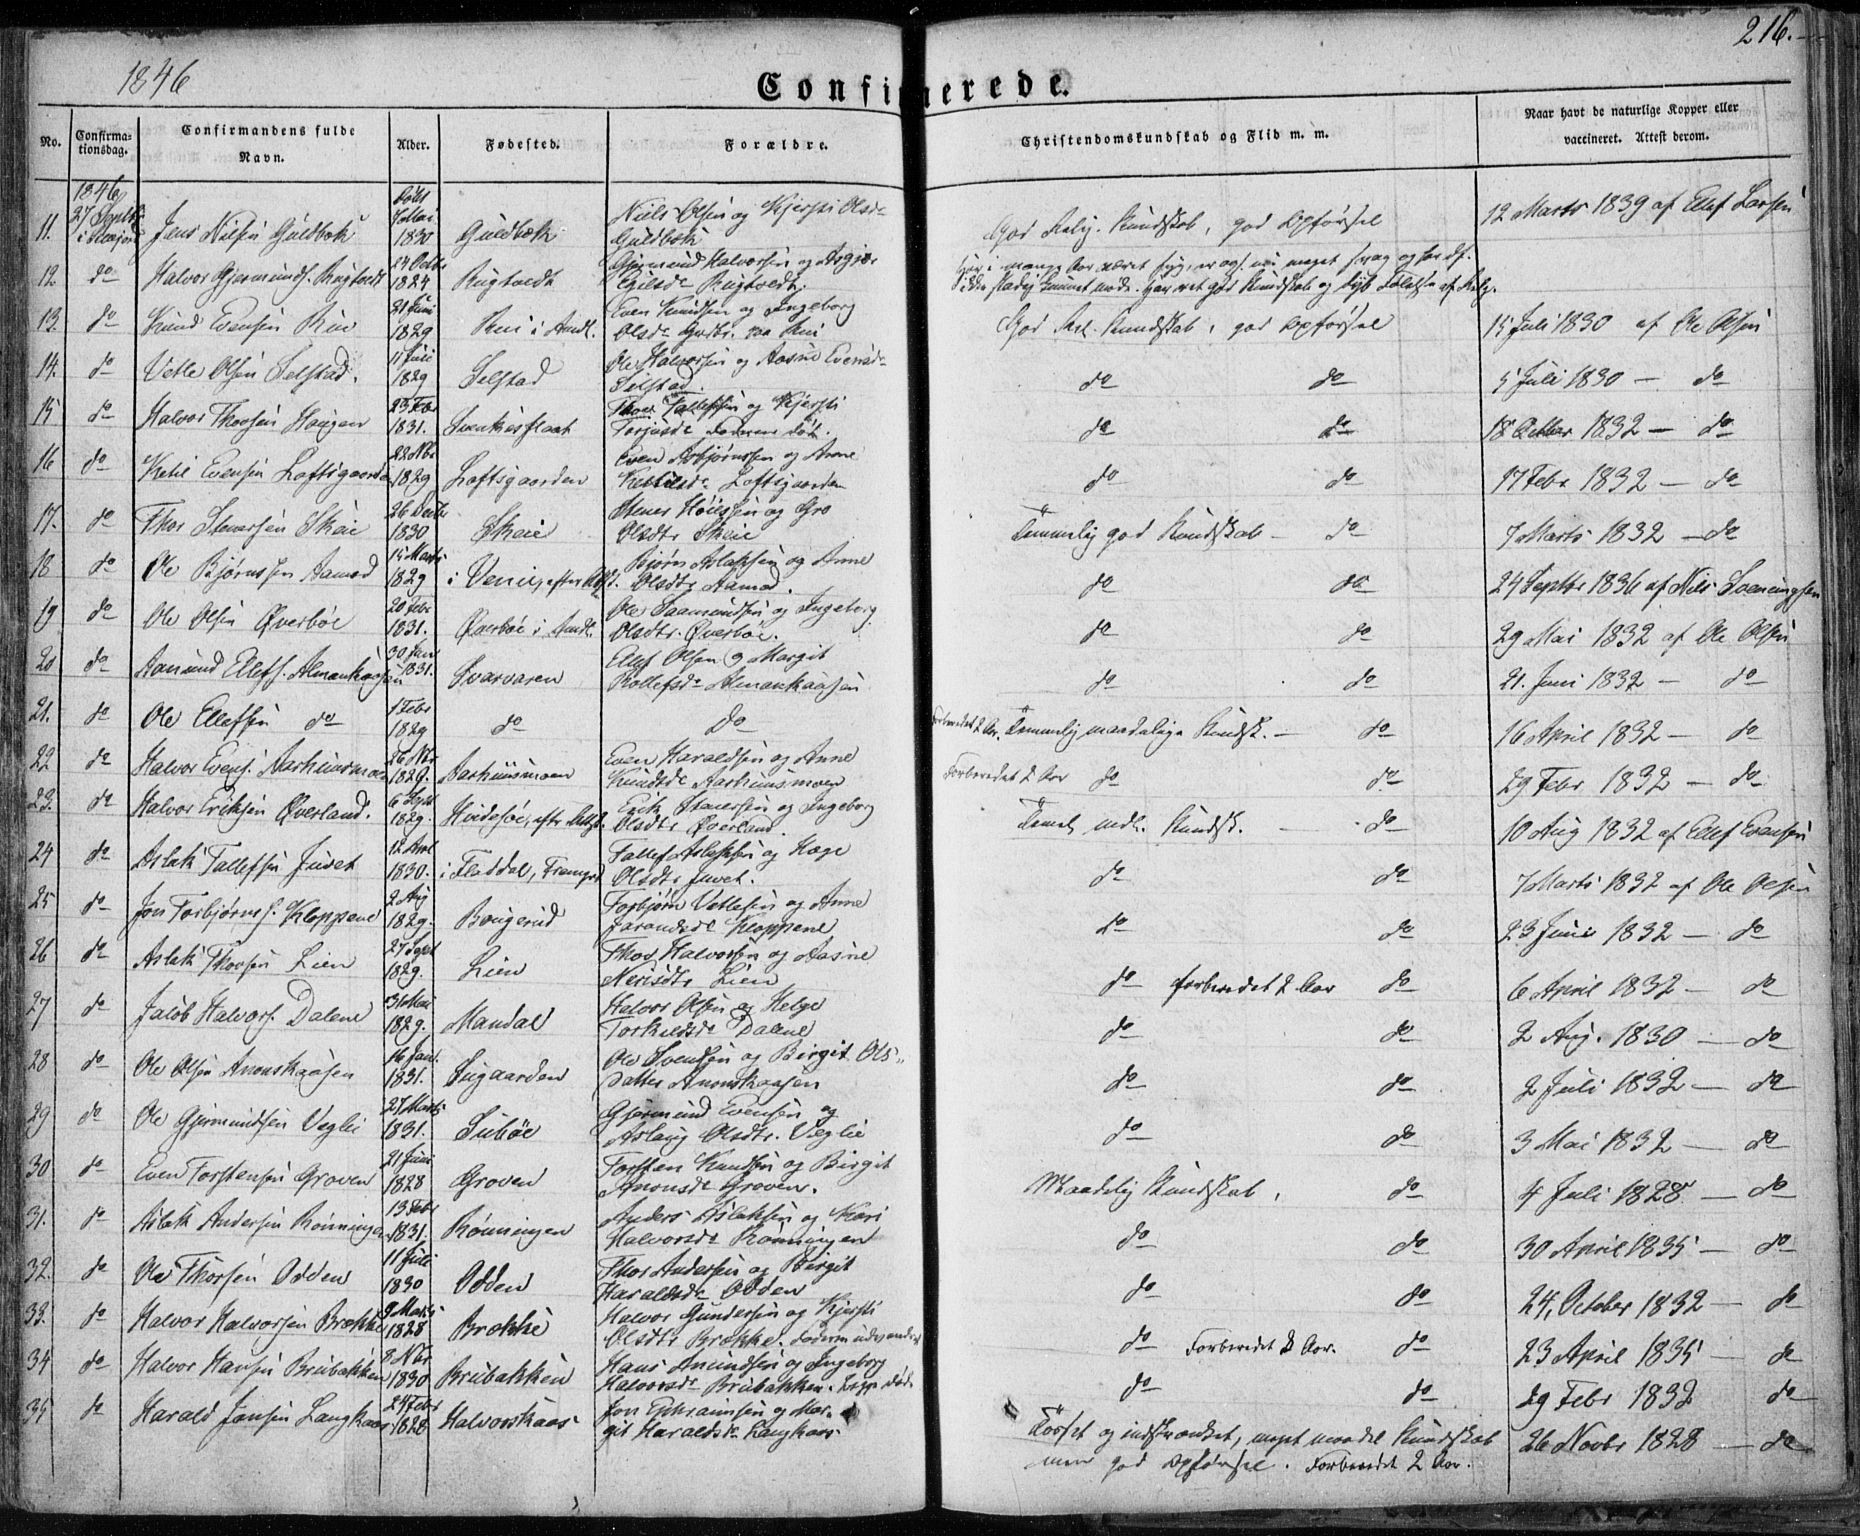 216.
1846
Confirmerede.
No.
Confirma-
tionsdag.
Confirmandens fulde
Navn.
Alder.
Fødested.
Forældre.
Christendomskundskab og Flid m. m.
Naar havt de naturlige Kopper eller
vaccineret. Attest derom.
1846
27 Septbr
11. Jens Nilsen Guldbek
7 Mai
1830 Guldbek
Niels Olsen og Kjersti Olsdr
Guldbek
God Relig. Kundskab, god Opførsel
12 Marts 1839 af Ellef Larsen
12. do Halvor Gjermunds. Rugtvedt
1824 Rugtvedt
Gjermund Halvorsen og Asgjer
Rugtvedt.
13. do Knud Evensen Rui
21 Juni
1829 Rui i Amdl.
Even Knudsen og Ingeborg
Olsdr. paa Rui
God Rel. Kundskab, god Opførsel
15 Juli 1830 af Ole Olsen
14. do Vetle Olsen Selstad.
11 Juli
1829 Selstad
Ole Halvorsen og Aasne Evensdr
Selstad.
do do
5 Juli 1830 — do
15 do Halvor Thorsen Haugen
23 Febr
1831.
Thor Tallefsen og Kjersti
Torjusdr Faderen død.
do do
18 Octbr 1832 — do
16 do Ketil Evensen Loftsgaarden
22 Nbr
1829 Loftsgaarden
Even Asbjørnsen og Anne
Kettilsdr Loftsgaarden
do do
17 Febr 1832 — do
17. do Thor Stenersen Skeie
26
1830 Skeie
Stener og Gro
Olsdtr Skeie
Temmelig god Kundskab — do
7 Marts 1832 — do
18 do Ole Bjørnsen Aamod
15 Marts
1829
Bjørn Aslaksen og Anne
Olsdtr Aamod.
do do
24 Septbr 1836 af Nils Sveningsen
19 do Ole Olsen Øverbøe
20 Febr
1831. Øverbøe i Amdl.
Ole Saamundsen og Ingeborg
Olsdtr. Øverbøe.
do do
29 Mai 1832 af Ole Olsen
20 do Aanund Ellefs. Almankaasen
30 Jan
1831. Svarvaren
Ellef Olsen og Margit
Rollefsdr Almankaasen
do do
21. Juni 1832 — do
21. do Ole Ellefsen do
1 Febr
1829 do
do
Forberedet 2 Aar. Temmelig maadelige Kundsk. — do
16 April 1832 — do
22 do Halvor Evens. Aarhuusmoen
26 Nbr
1829. Aarhuusmoen
Even Haraldsen og Anne
Knudsdr Aarhuusmoen
Forberedet 2 Aar do do
29 Febr 1832 — do
23. do Halvor Eriksen Øverland.
6 Sept
1829. Hvidesøe, efter Attest.
Erik Stenersen og Ingeborg
Olsdtr Øverland.
Temel. mdl. Kundsk. — do
10 Aug 1832 af Ellef Evensen
24 do Aslak Tallefsen Juvet
12 Aprl
1830. i Fladdal,
Tallef Aslaksen og Hæge
Olsdtr Juvet.
do do
7 Marts 1832 af Ole Olsen
25 do Jon Torbjørns. Kloppene
2 Aug
1829. Baugerud
Torbjørn Vetlesen og Anne
Jørandsdr Kloppene
do do
23 Juni 1832 — do
26 do Aslak Thorsen Lien
27 Sept
1829. Lien
Thor Halvorsen og Aasne
Nerisdtr Lien
do forberedet 2 Aar do
6 April 1832 — do
27 do Jacob Halvors. Dalene
31 Mai
1829. Mandal
Halvor Olsen og Helge
Torkildsdr Dalene
do do
2 Aug. 1830 — do
28 do Ole Olsen Anonskaasen
16 Jan.
1831. Sugaarden
Ole Svendsen og Birgit Ols-
datter Anonskaasen
do do
2 Juli 1832 — do
29 do Ole Gjermundsen Veglie
27 Marts
1831. Subøe
Gjermund Evensen og
Aslaug Olsdtr. Veglie
do do
3 Mai 1832 — do
30 do Even Torstensen Groven
21 Juni
1828 Groven
Torsten Knudsen og Birgit
Anonsdr Groven.
Maadelig Kundskab, do
4 Juli 1828 — do
31. do Aslak Andersen Rønningen
13 Febr
1831. Rønningen
Anders Aslaksen og Kari
Halvorsdr Rønningen
do do
30 April 1835 — do
32. do Ole Thorsen Odden
11 Juli
1830 Odden
Thor Andersen og Birgit
Haraldsdr Odden
do do
24, October 1832 — do
33. do Halvor Halvorsen Brække
9 Marts
1828 Brække
Halvor Gundersen og Kjersti
Olsdtr Brække. Faderen udvandret
do Forberedet 2 Aar. do
23 April 1835 — do
34 do Halvor Hansen Brubakken
8 Nbr
1830 Brubakken
Hans Anundsen og Ingeborg
Halvorsdr Brubakken. Begge døde
do do
29 Febr 1832 do
35 do Harald Jonsen Langkaas
24 Febr
1828 Halvorskaas
Jon Ephraimsen og Mar-
git Haraldsdr Langkaas
og indskrænket, meget maadel. Kundskab
men god Opførsel. Forberedet 2 Aar.
26 Novbr 1828 — do